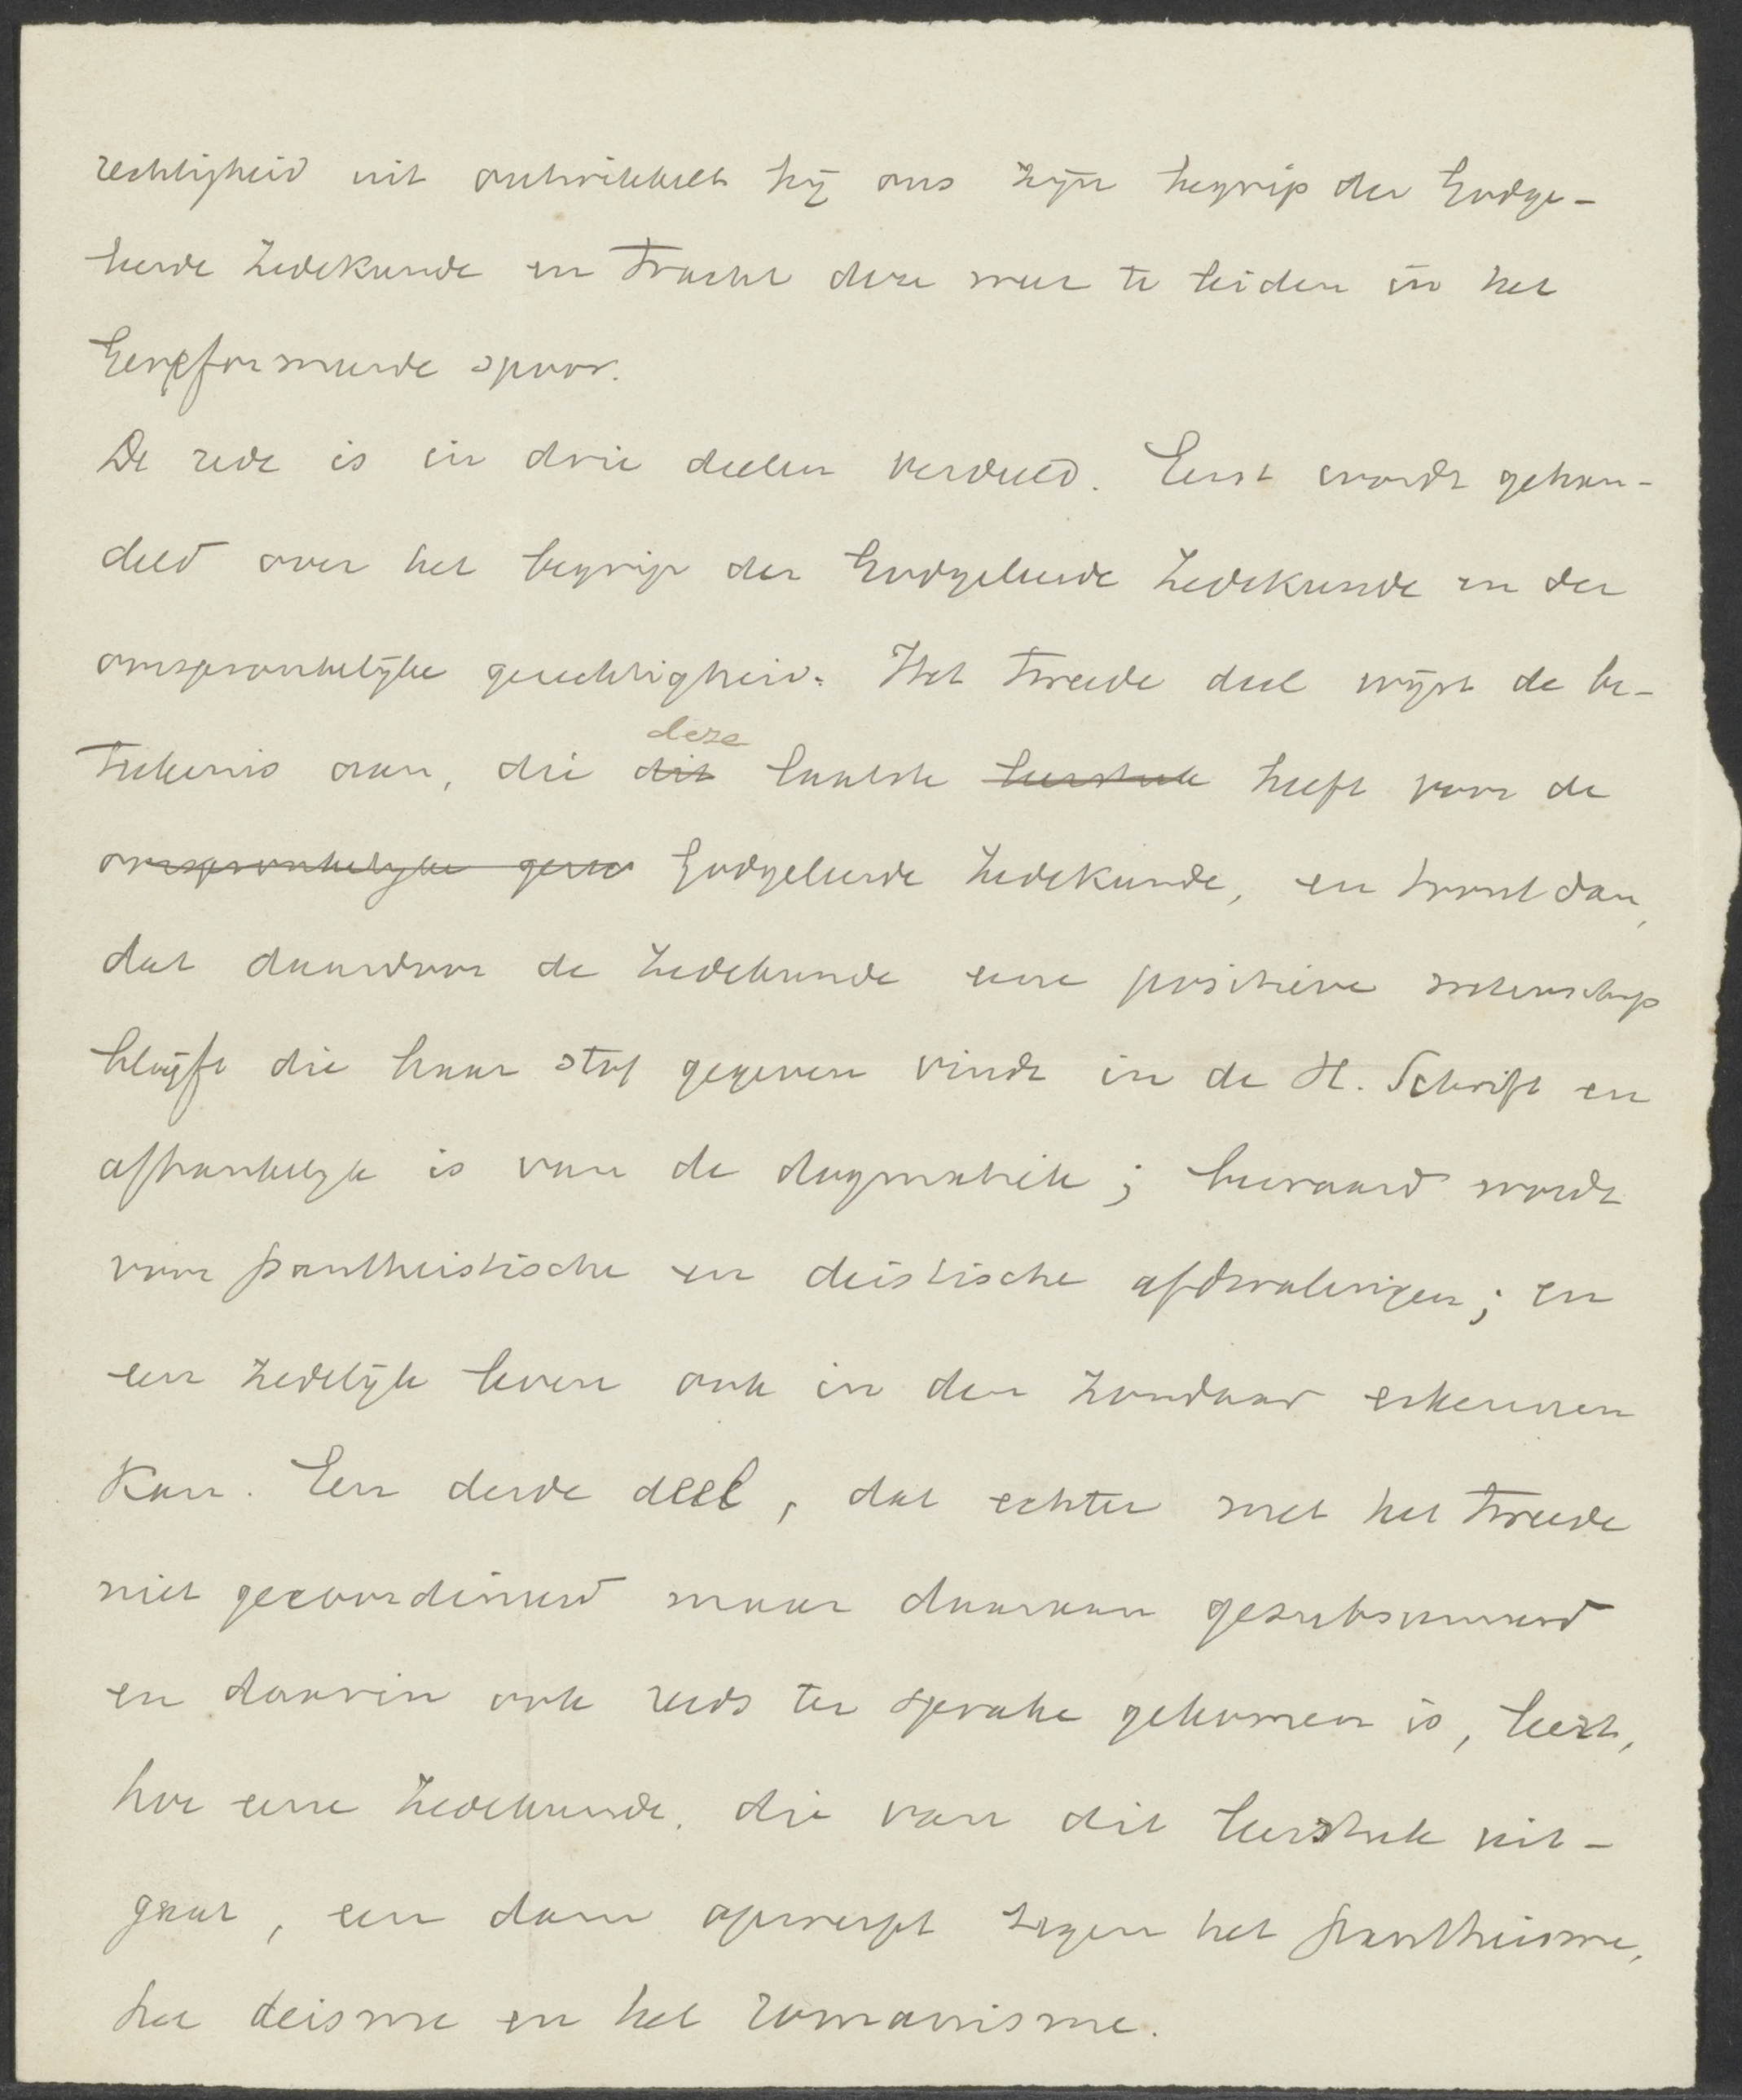 rechtigheid uit ontwikkelt hij ons zijn begrip der Godge-
leerde Zedekunde en tracht deze weer te leiden in het
Gereformeerde spoor.
De rede is in drie deelen verdeeld. Eerst wordt gehan-
deld over het begrip der Godgeleerde Zedekunde en der
oorspronkelijke gerechtigheid. Het tweede deel wijst de be-
teekenis aan, die dit deze laatste leerstuk heeft voor de
oorspronkelijke gerec Godgeleerde Zedekunde, en toont dan,
dat daardoor de Zedekunde eene positieve wetenschap
blijft die haar stof gegeven vindt in de H. Schrift en
afhankelijk is van de dogmatiek; bewaard wordt
voor pantheistische en deistische afdwalingen; en
een zedelijk leven ook in den zondaar erkennen
kan. Een derde deel, dat echter met het tweede
niet gecoordineerd maar daaraan gesubsumeerd
en daarin ook reeds ter sprake gekomen is, leert,
hoe eene Zedekunde, die van dit leerstuk uit-
gaat, een dam opwerpt tegen het pantheisme,
het deisme en het romanisme.